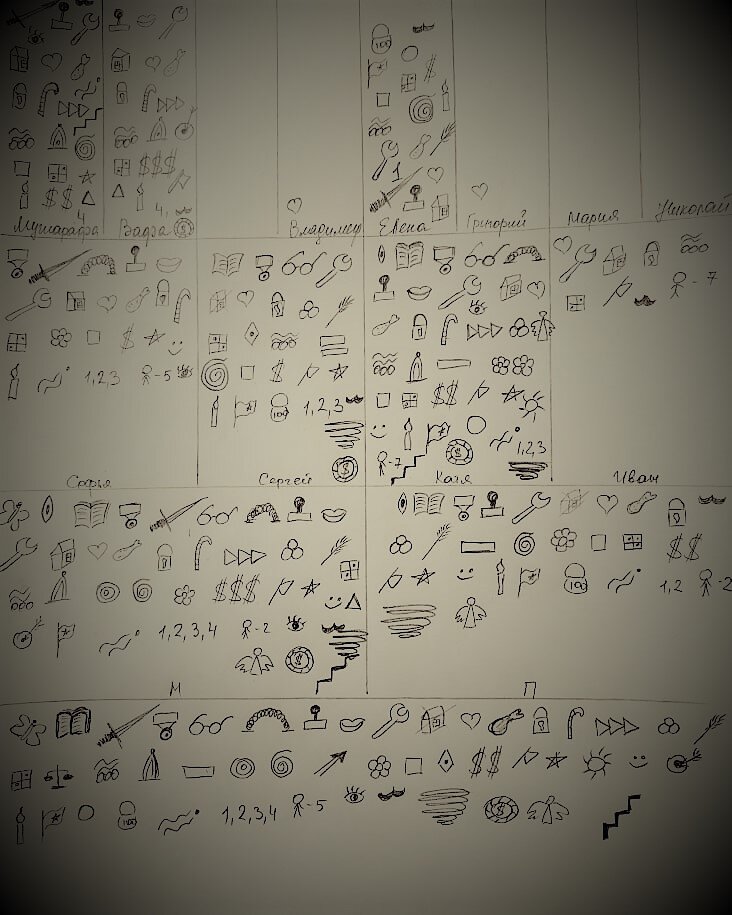 100
$
1
$$$
$$
4,
4,
Мушарафа Вафа Владимир Елена Григорий Мария Николай
- 7
$
1,2,3 - 5
$
100 1,2,3
$
$$
1,2,3
- 7
$
Софья Сергей Катя Иван
$$
$$$
100 1,2 - 2
1,2,3,4 - 2
$
М П
$$
100 1,2,3,4 - 5
$